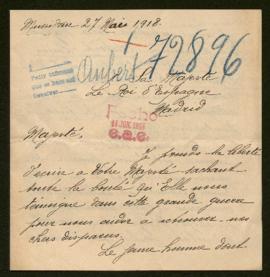 27 Mars 1918.
72896
Aubert
Majesté
Le Roi d'Espagne
Madrid
Majesté,
Je prends la liberté
d'écrire à Votre Majesté sachant
toute la bonté qu'Elle nous
témoigne dans cette grande guerre
pour nous aider à retrouver nos
chers disparus.
Le jeune homme dont